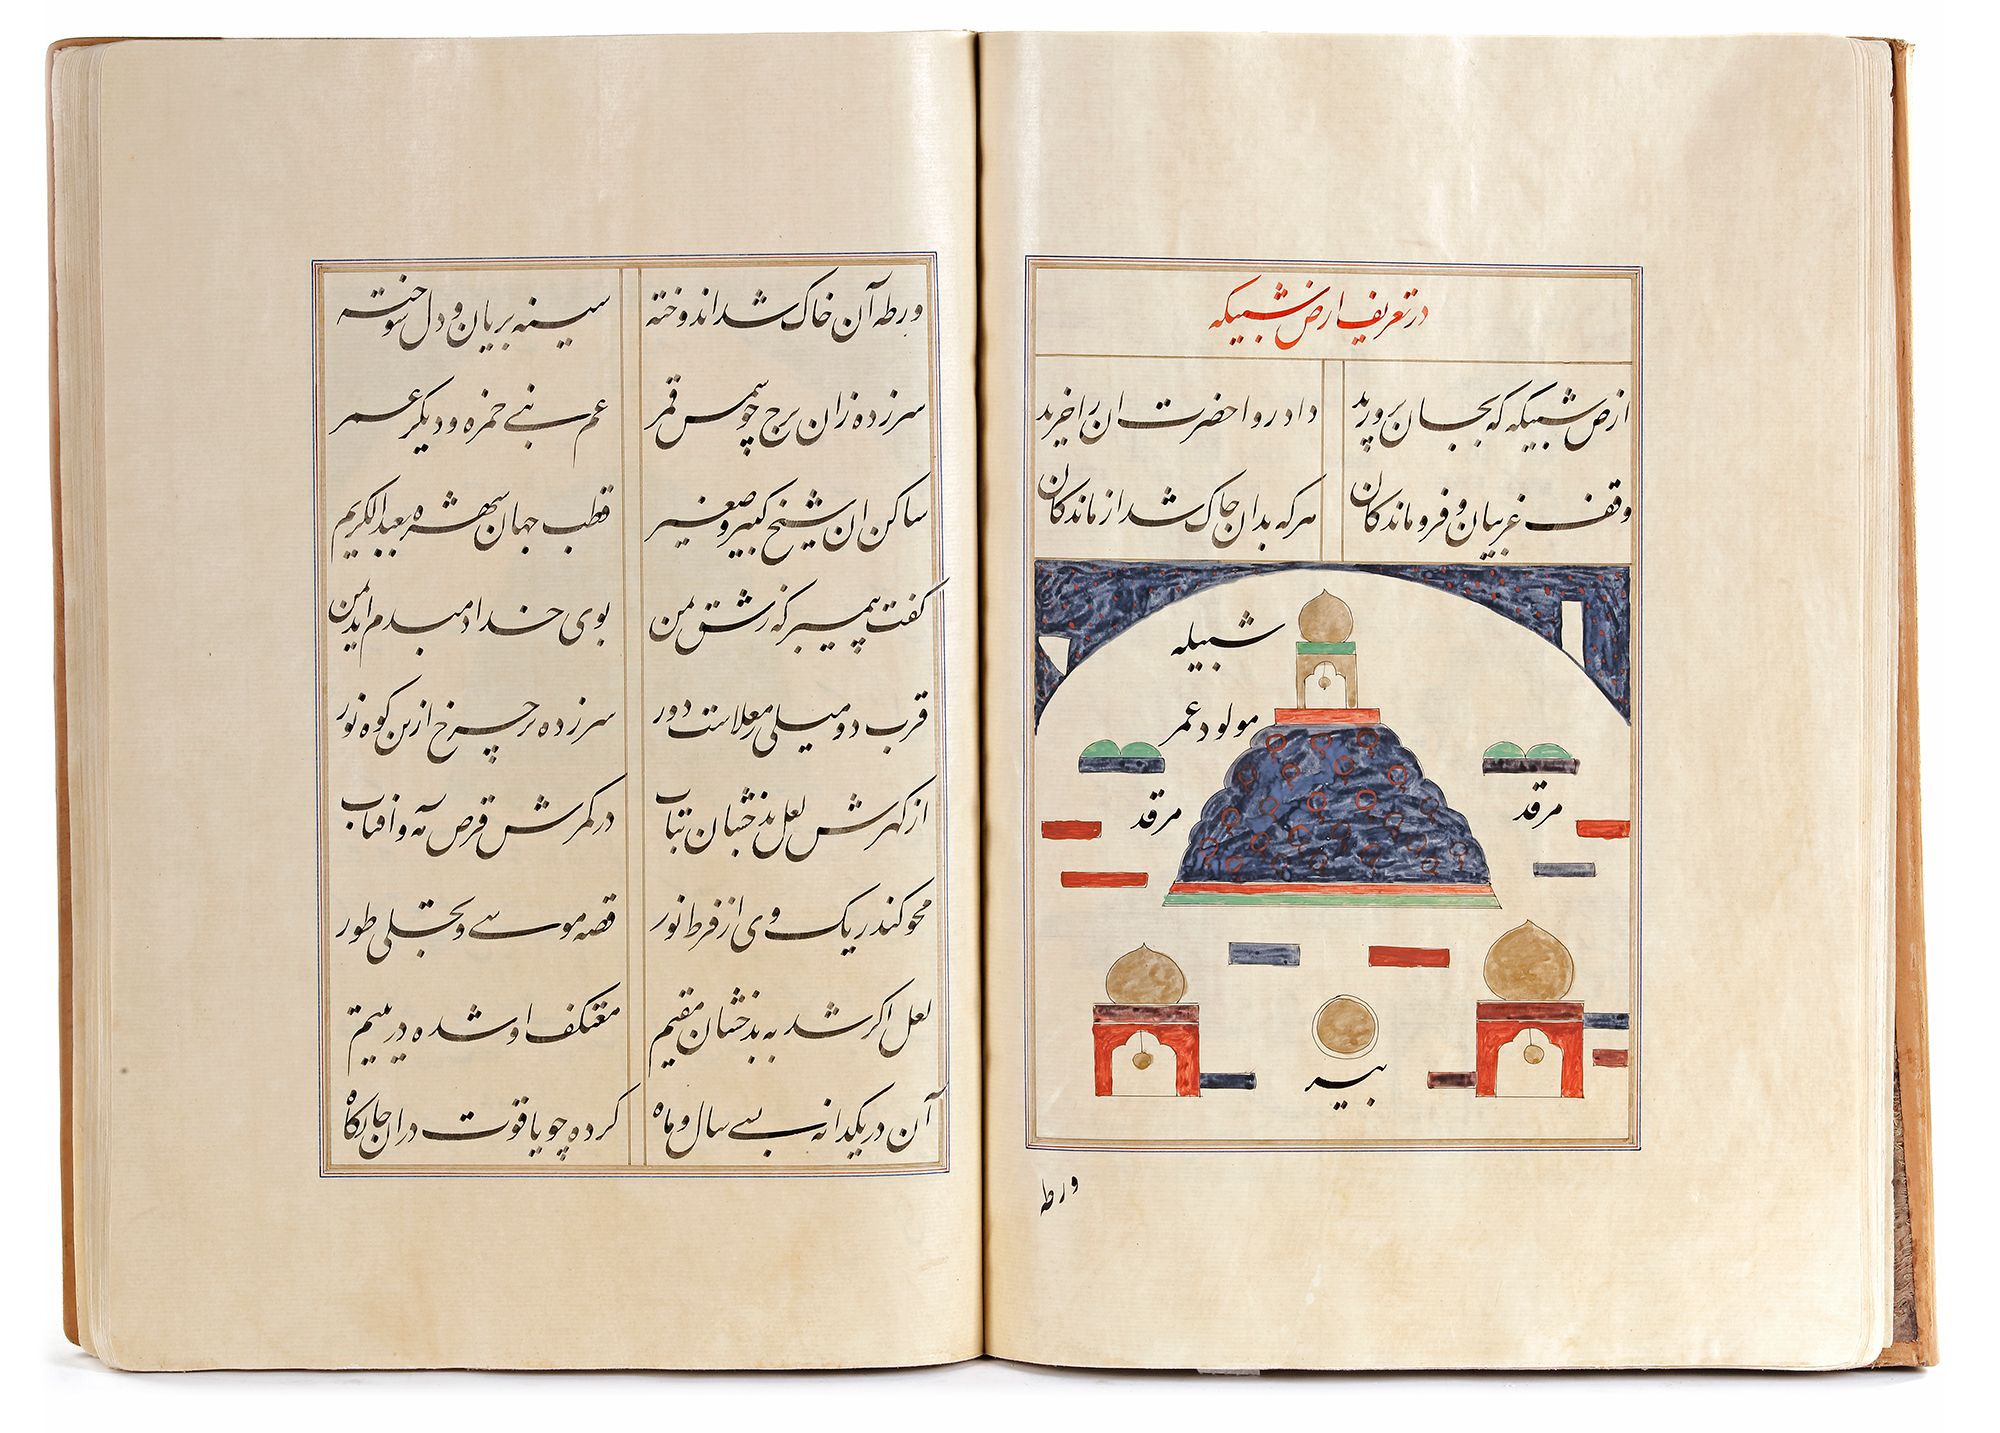 در تعریف ارض شبیکه
ارض شبیکه که بجان پرورید دادروا حضرت ان را خرید
وقف غریبان و فروماندکان هرکه بدان جاک شد از ماندکان
شبیله
مولود عمر
مرقد
مرقد
بیر
ورطه
ورطه آن خاک شد اندوخته سینه بریان و دل سوخته
سرزده زان برج چو شمس قمر عم نبی حمزه و دیکر عمر
ساکن ان شیخ کبیر و صغیر قطب جهان شهره بعبدالکریم
کفت پیمبر که زشق یمن بوی خدا دمبدم اید بمن
قرب دو میلی زمعلاست دور سرزده بر چرخ ازین کوه نور
از کهرش لعل بذخشان بتاب در کمرش قرص مه و افتاب
محو کند ریک وی از فرط نور قصه موسی و تجلی طور
لعل اکر شد به بذخشان مقیم معتکف او شده در یتیم
آن در یکدانه بسی سال و ماه کرده چو یاقوت دران جایکاه